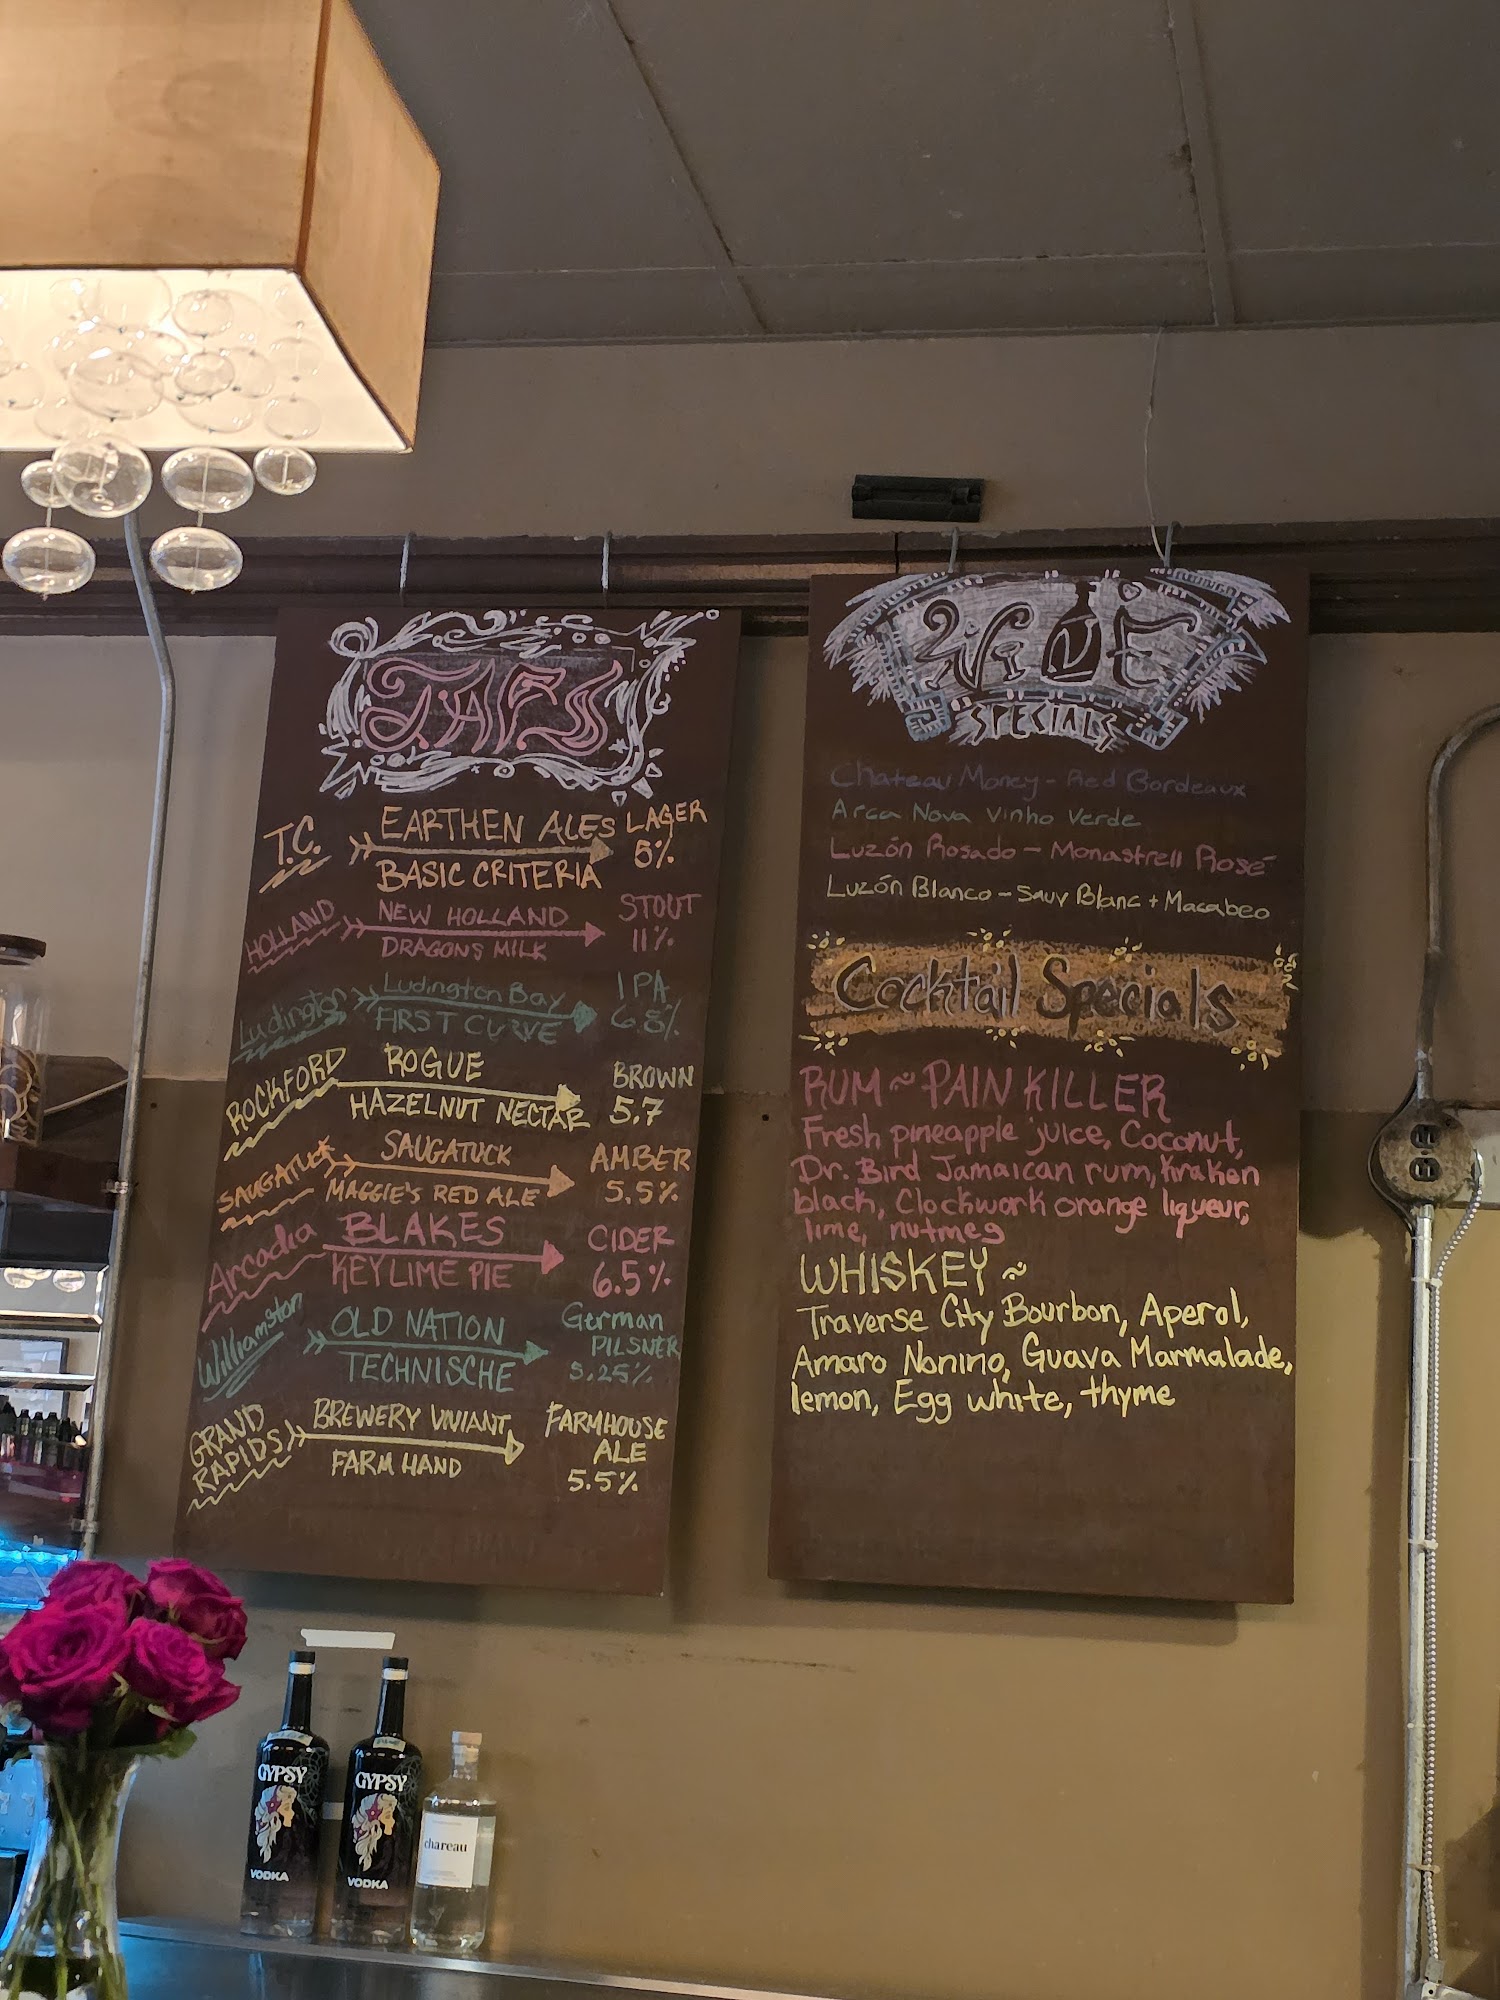 TAPS
T.C.
EARTHEN ALES
BASIC CRITERIA
LAGER
5%
HOLLAND
NEW HOLLAND
DRAGONS MILK
STOUT
11%
Ludington
Ludington Bay
FIRST CURVE
IPA
6.8%
ROCKFORD
ROGUE
HAZELNUT NECTAR
BROWN
5.7
SAUGATUCK
SAUGATUCK
MAGGIE'S RED ALE
AMBER
5.5%
Arcadia
BLAKES
KEY LIME PIE
CIDER
6.5%
Williamston
OLD NATION
TECHNISCHE
German
PILSNER
5.25%
GRAND
RAPIDS
BREWERY VIVIANT
FARM HAND
FARMHOUSE
ALE
5.5%
WINE
SPECIALS
Chateau Money - Red Bordeaux
Arca Nova Vinho Verde
Luzón Rosado - Monastrell Rosé
Luzón Blanco - Sauv Blanc + Macabeo
Cocktail Specials
RUM ~ PAIN KILLER
Fresh pineapple juice, Coconut,
Dr. Bird Jamaican rum, Kraken
black, Clockwork orange liqueur,
lime, nutmeg
WHISKEY ~
Traverse City Bourbon, Aperol,
Amaro Nonino, Guava Marmalade,
lemon, Egg white, thyme
GYPSY
VODKA
GYPSY
VODKA
chareau